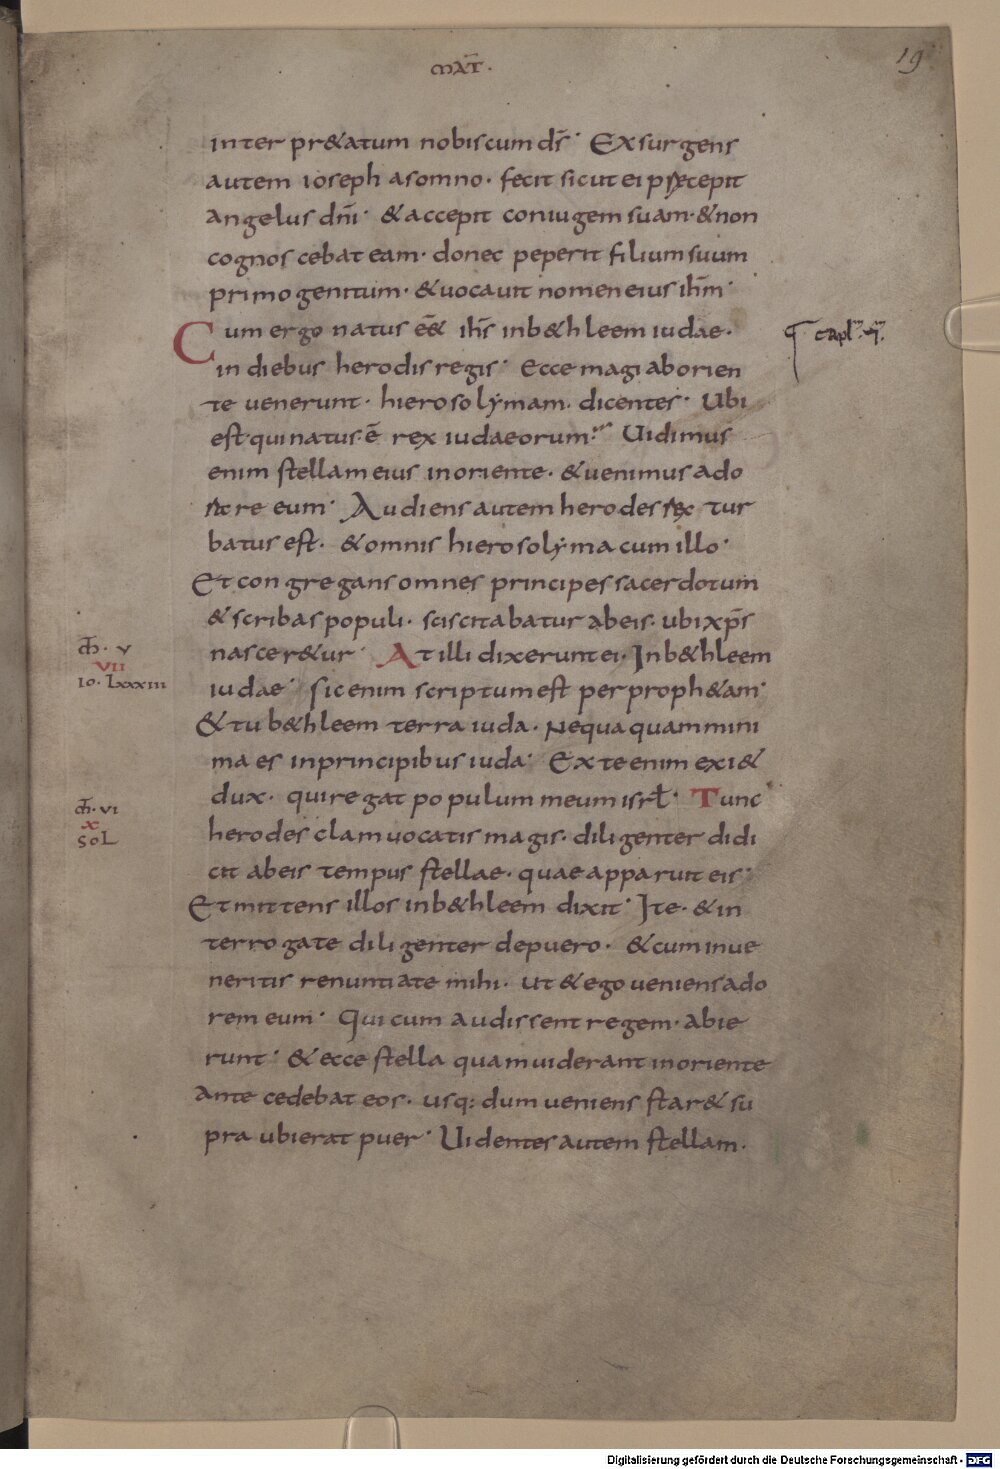 MAT̄.
19
inter pr&atum nobiscum dr̄. Exsurgens
autem ioseph asomno. fecit sicut ei praecepit
angelus dn̄i. & accepit coniugem suam. & non
cognoscebat eam. donec peperit filium suum
primogenitum. & uocauit nomen eius ih̄m.
Cum ergo natus eē& ih̄s inb&hleem iudae.
cap̄l. ij.
in diebus herodis regis. Ecce magi aborien
te uenerunt. hierosolymam. dicentes. Ubi
est qui natus. ē rex iudaeorum. Uidimus
enim stellam eius inoriente. & uenimus ado
rare eum. Audiens autem herodes rex tur
batus est. & omnis hierosolyma cum illo.
Et congregans omnes principes sacerdotum
& scribas populi. sciscitabatur abeis. ubi xp̄s
nascer&ur. At illi dixerunt ei. In b&hleem
iudae. sic enim scriptum est per proph&am.
& tu b&hleem terra iuda. Nequaquam mini
ma es inprincipibus iuda. Ex te enim exi&
dux. qui regat populum meum isrł. Tunc
herodes clam uocatis magis. diligenter didi
cit abeis tempus stellae. quae apparuit eis.
Et mittens illos inb&hleem dixit. Ite. & in
terrogate diligenter depuero. & cum inue
neritis renuntiate mihi. ut & ego ueniens ado
rem eum. Qui cum audissent regem. abie
runt. & ecce stella quam uiderant inoriente
Antecedebat eos. usq; dum ueniens star& su
pra ubi erat puer. Uidentes autem stellam.
m̄. v
VII
IO. LXXXIII
m̄. VI
X
SOL
Digitalisierung gefördert durch die Deutsche Forschungsgemeinschaft - DFG